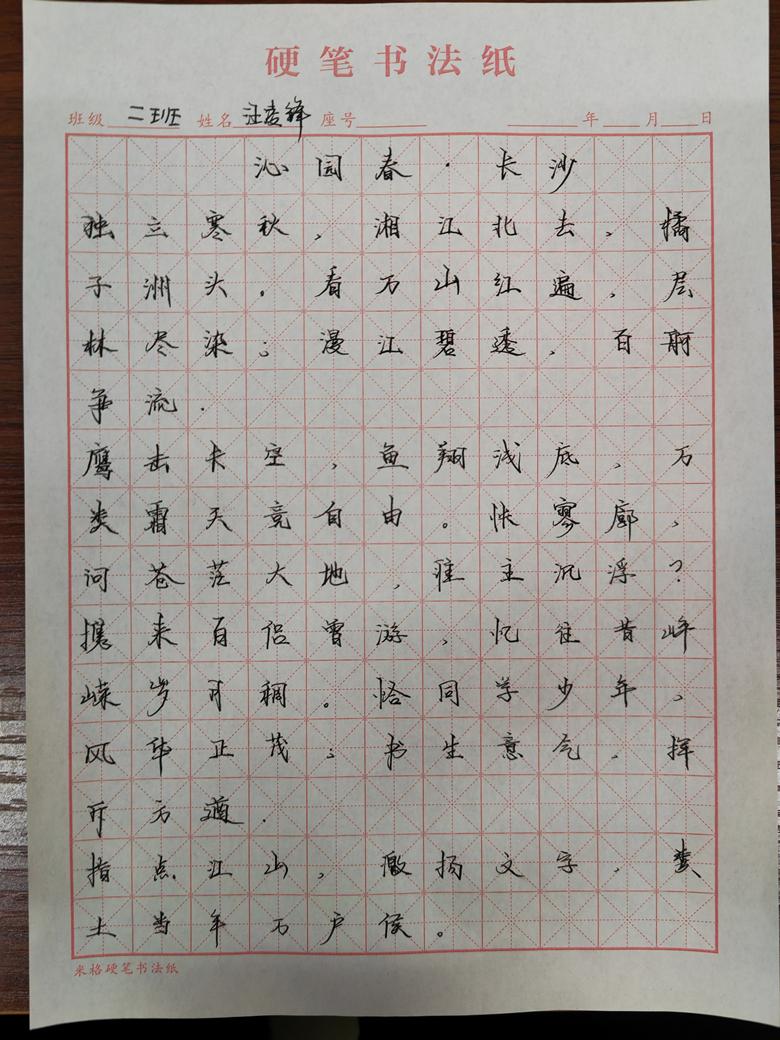 硬笔书法纸
班级 二班 姓名 汪 锋 座号 年 月 日
沁园春·长沙
独立寒秋,湘江北去,橘
子洲头。看万山红遍,层
林尽染;漫江碧透,百舸
争流.
鹰击长空,鱼翔浅底,万
类霜天竞自由。怅寥廓,
问苍茫大地,谁主沉浮?
携来百侣曾游,忆往昔峥
嵘岁月稠。恰同学少年,
风华正茂;书生意气,挥
斥方遒.
指点江山,激扬文字,粪
土当年万户侯。
来格硬笔书法纸